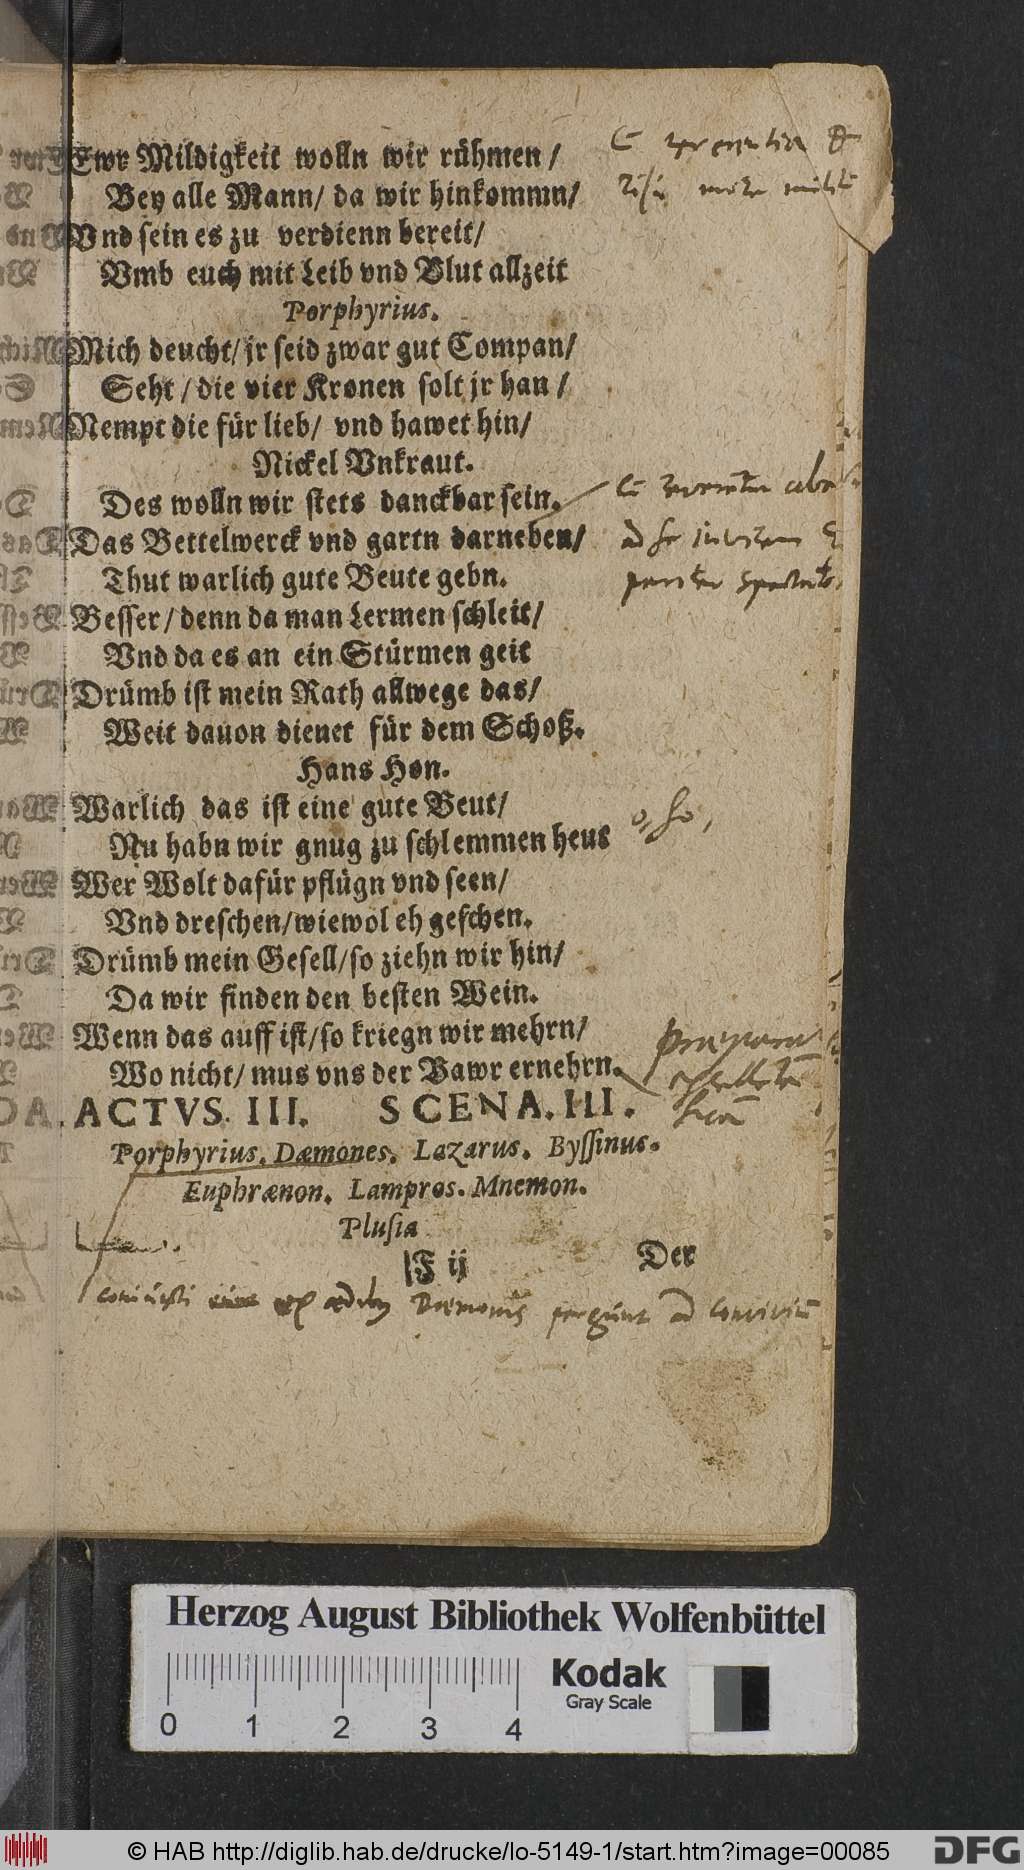 Ewr Mildigkeit wolln wir rühmen /
Bey alle Mann / da wir hinkommn /
Vnd sein es zu verdienn bereit /
Vmb euch mit Leib vnd Blut allzeit
Porphyrius.
Mich deucht / jr seid zwar gut Compan /
Seht / die vier Kronen solt jr han /
Nempt die für lieb / vnd hawet hin /
Nickel Vnkraut.
Des wolln wir stets danckbar sein.
Das Bettelwerck vnd gartn darneben /
Thut warlich gute Beute gebn.
Besser / denn da man Lermen schleit /
Vnd da es an ein Stürmen geit
Drümb ist mein Rath allwege das /
Weit dauon dienet für dem Schoß.
Hans Hon.
Warlich das ist eine gute Beut /
Nu habn wir gnug zu schlemmen heut
Wer Wolt dafür pflügn vnd seen /
Vnd dreschen / wiewol eh geschen.
Drümb mein Gesell / so ziehn wir hin /
Da wir finden den besten Wein.
Wenn das auff ist / so kriegn wir mehrn /
Wo nicht / mus vns der Bawr ernehrn.
ACTVS. III. SCENA. III.
Porphyrius. Dæmones. Lazarus. Byssinus.
Euphrænon. Lampros. Mnemon.
Plusia
F ij Der
ad convivium
Herzog August Bibliothek Wolfenbüttel
Kodak
Gray Scale
0 1 2 3 4
© HAB http://diglib.hab.de/drucke/lo-5149-1/start.htm?image=00085
DFG